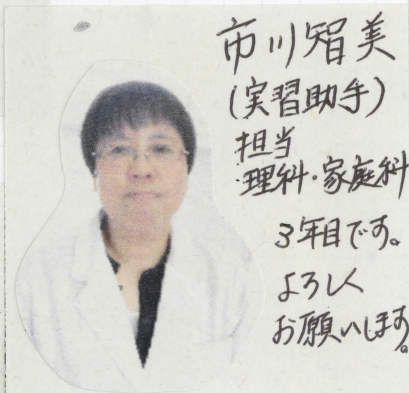 市川智美
(実習助手)
担当
理科・家庭科
3年目です。
よろしく
お願いします。